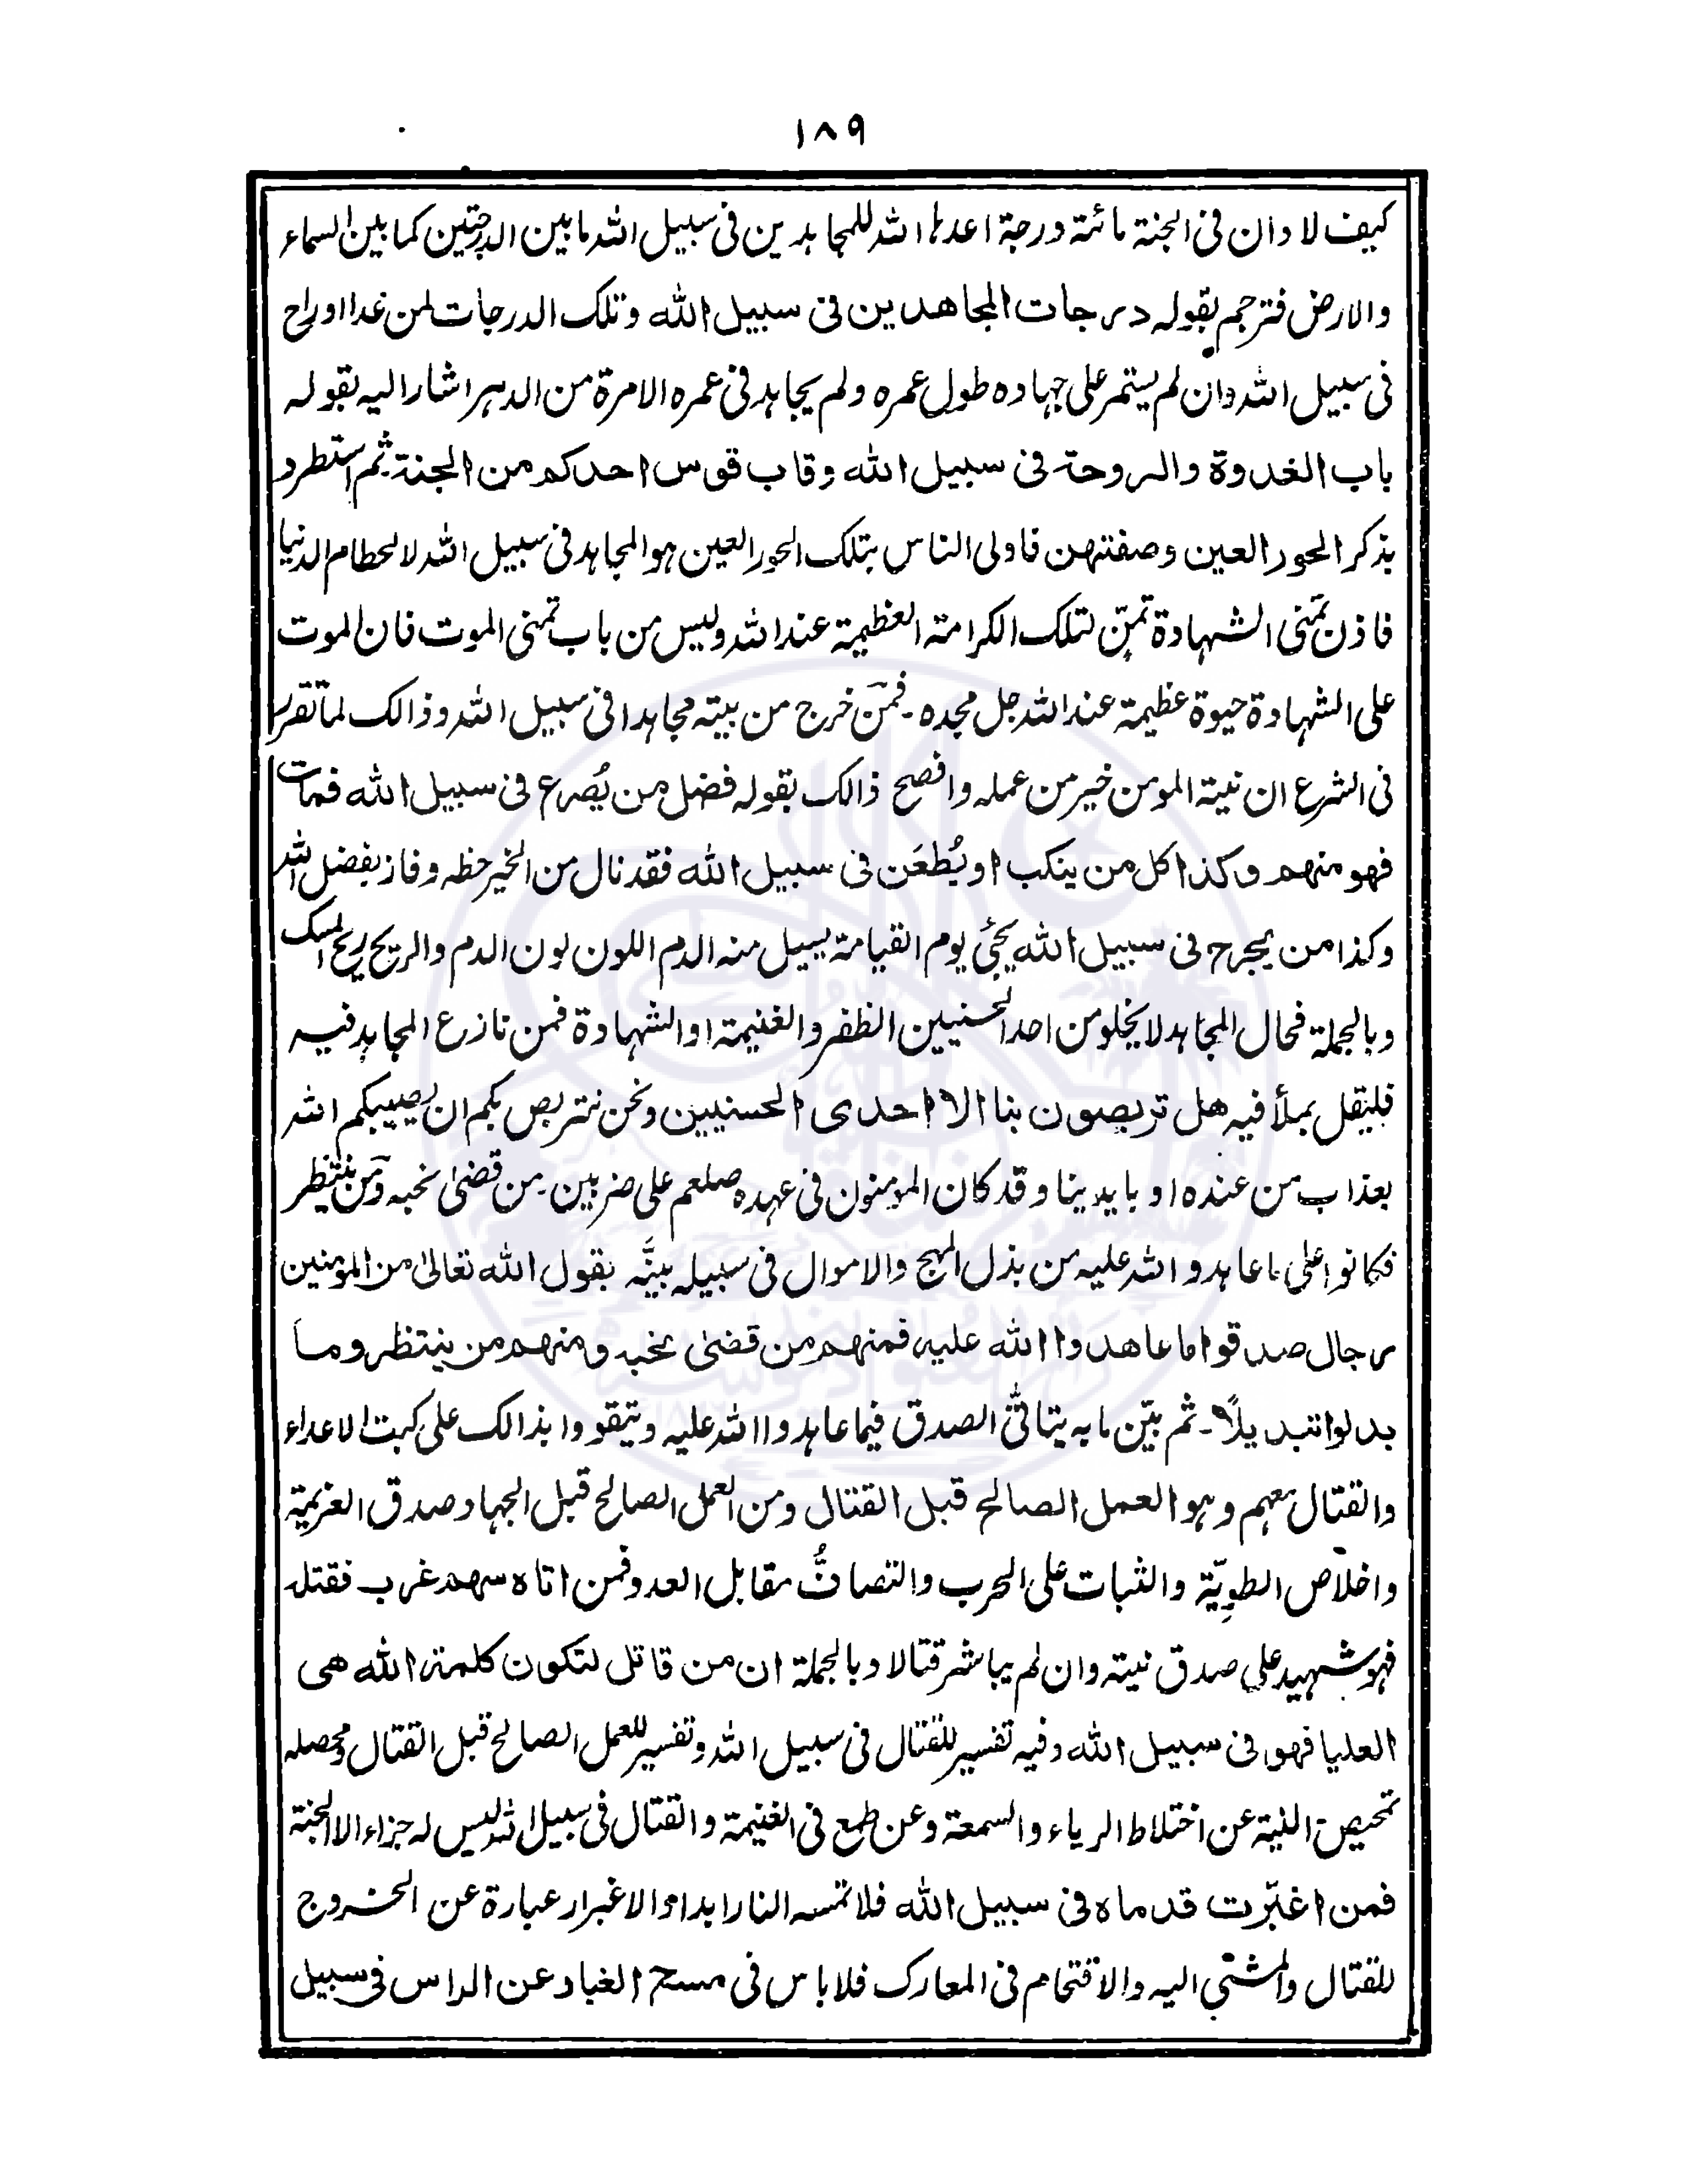 ١٨٩
كيف لا وان فى الجنة مائة درجة اعدها الله للمجاهدين فى سبيل الله ما بين الدرجتين كما بين السماء
والارض فترجم بقوله درجات المجاهدين فى سبيل الله وتلك الدرجات لمن غدا اوراح
فى سبيل الله وان لم يستمر على جهاده طول عمره ولم يجاهد فى عمره الا مرة من الدهر اشار اليه بقوله
باب الغدوة والروحة فى سبيل الله وقاب قوس احدكم من الجنة۔ ثم استطرد
بذكر الحور العين وصفتهن فاولى الناس بتلك الحور العين هو المجاهد فى سبيل الله لا لحطام الدنيا
فاذن تمنى الشهادة تمنّ لتلك الكرامة العظيمة عند الله وليس من باب تمنى الموت فان الموت
على الشهادة حيوة عظيمة عند الله جل مجده۔ فمَن خرج من بيته مجاهدا فى سبيل الله وذالك لما تقرر
فى الشرع ان نية المومن خير من عمله وافصح ذالك بقوله فضل من يُصرع فى سبيل الله فمات
فهو منهم وكذا كل من ينكب او يُطعَن فى سبيل الله فقد نال من الخير حظه وفاز بفضل الله
وكذا من يجرح فى سبيل الله يجئ يوم القيامة يسيل منه الدم اللون لون الدم والريح ريح المسك
وبالجملة فحال المجاهد لا يخلو من احد الحسنيين الظفر والغنيمة او الشهادة فمن نازع المجاهد فيه
فليقل بملأ فيه هل تربصون بنا الا احدى الحسنيين ونحن نتربص بكم ان يصيبكم الله
بعذاب من عنده او بايدينا وقد كان المومنون فى عهده صلعم على ضربين۔ من قضىٰ نحبه ومَن ينتظر
فكانوا على ما عاهدوا الله عليه من بذل المهج والاموال فى سبيله بيَّنه بقول الله تعالىٰ من المؤمنين
رجال صدقوا ما عاهدوا الله عليه فمنهم من قضىٰ نحبه ومنهم من ينتظر وما
بدلوا تبديلاً۔ ثم بيّن ما به يتأتّى الصدق فيما عاهدوا الله عليه ويتقووا بذالك على كبت الاعداء
والقتال معهم وهو العمل الصالح قبل القتال ومن العمل الصالح قبل الجهاد صدق العزيمة
واخلاص الطويّة والثبات على الحرب والتصافُّ مقابل العدو فمن اتاه سهم غرب فقتله
فهو شهيد على صدق نيته وان لم يباشر قتالا وبالجملة ان من قاتل لتكون كلمة الله هى
العليا فهو فى سبيل الله وفيه تفسير للقتال فى سبيل الله وتفسير للعمل الصالح قبل القتال ومحصله
تمحيص النية عن اختلاط الرياء والسمعة وعن طمع فى الغنيمة والقتال فى سبيل الله ليس له جزاء الا الجنة
فمن اغبّرت قدماه فى سبيل الله فلا تمسه النار ابداء والاغبرار عبارة عن الخروج
للقتال والمشى اليه والاقتحام فى المعارك فلا باس فى مسح الغبار عن الراس فى سبيل